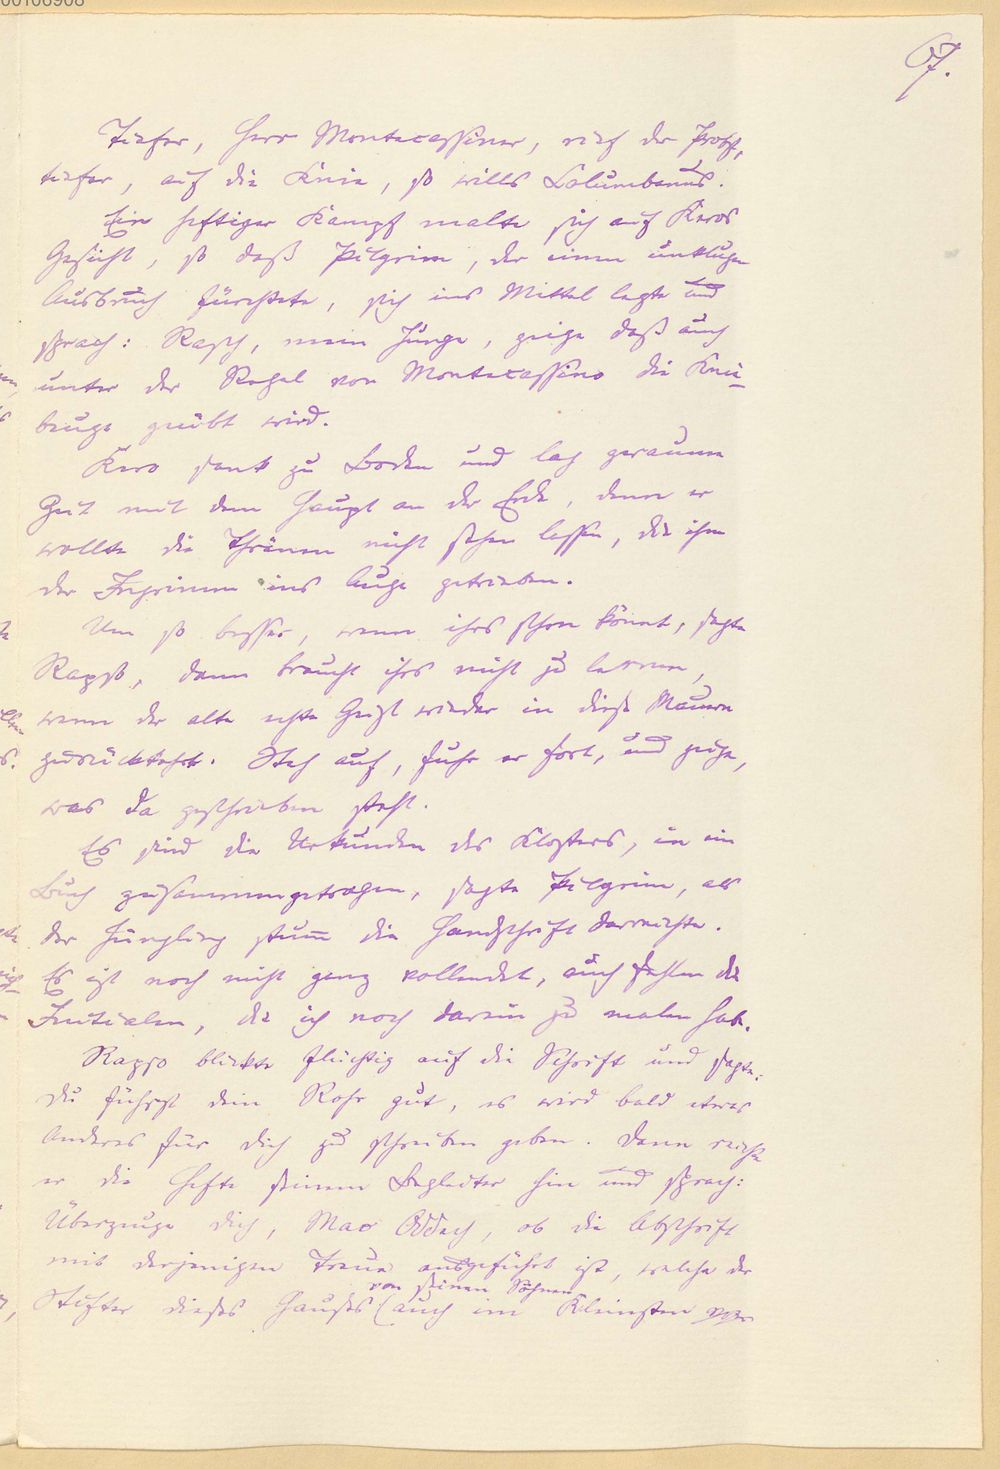 67.
Tiefer, Herr Montecassiner, rief der Propst,
tiefer, auf die Knie, so wills Columbanus.
Ein heftiger Kampf malte sich auf Keros
Gesicht, so daß Pilgrim, der einen unklugen
Ausbruch fürchtete, sich ins Mittel legte und
sprach: Rasch, mein Junge, zeige daß auch
unter der Regel von Montecassino die Knie-
beuge geübt wird.
Kero sank zu Boden und lag geraume
Zeit mit dem Haupt an der Erde, denn er
wollte die Thränen nicht sehen lassen, die ihm
der Ingrimm ins Auge getrieben.
Um so besser, wenn ihrs schon könnt, sagte
Rapso, dann braucht ihrs nicht zu lernen,
wenn der alte echte Geist wieder in diese Mauern
zurückkehrt. Steh auf, fuhr er fort, und zeige,
was da geschrieben steht.
Es sind die Urkunden des Klosters, in ein
Buch zusammengetragen, sagte Pilgrim, als
der Jüngling stumm die Handschrift darreichte.
Es ist noch nicht ganz vollendet, auch fehlen die
Initialen, die ich noch darein zu malen habe.
Rapso blickte flüchtig auf die Schrift und sagte:
Du führst dein Rohr gut, es wird bald etwas
Anderes für dich zu schreiben geben. Dann reichte
er die Hefte seinem Begleiter hin und sprach:
Überzeuge dich, Mac Oddach, ob die Abschrift
mit derjenigen Treue ausgeführt ist, welche der
von seinen Söhnen
Stifter dieses Hauses (auch im Kleinsten